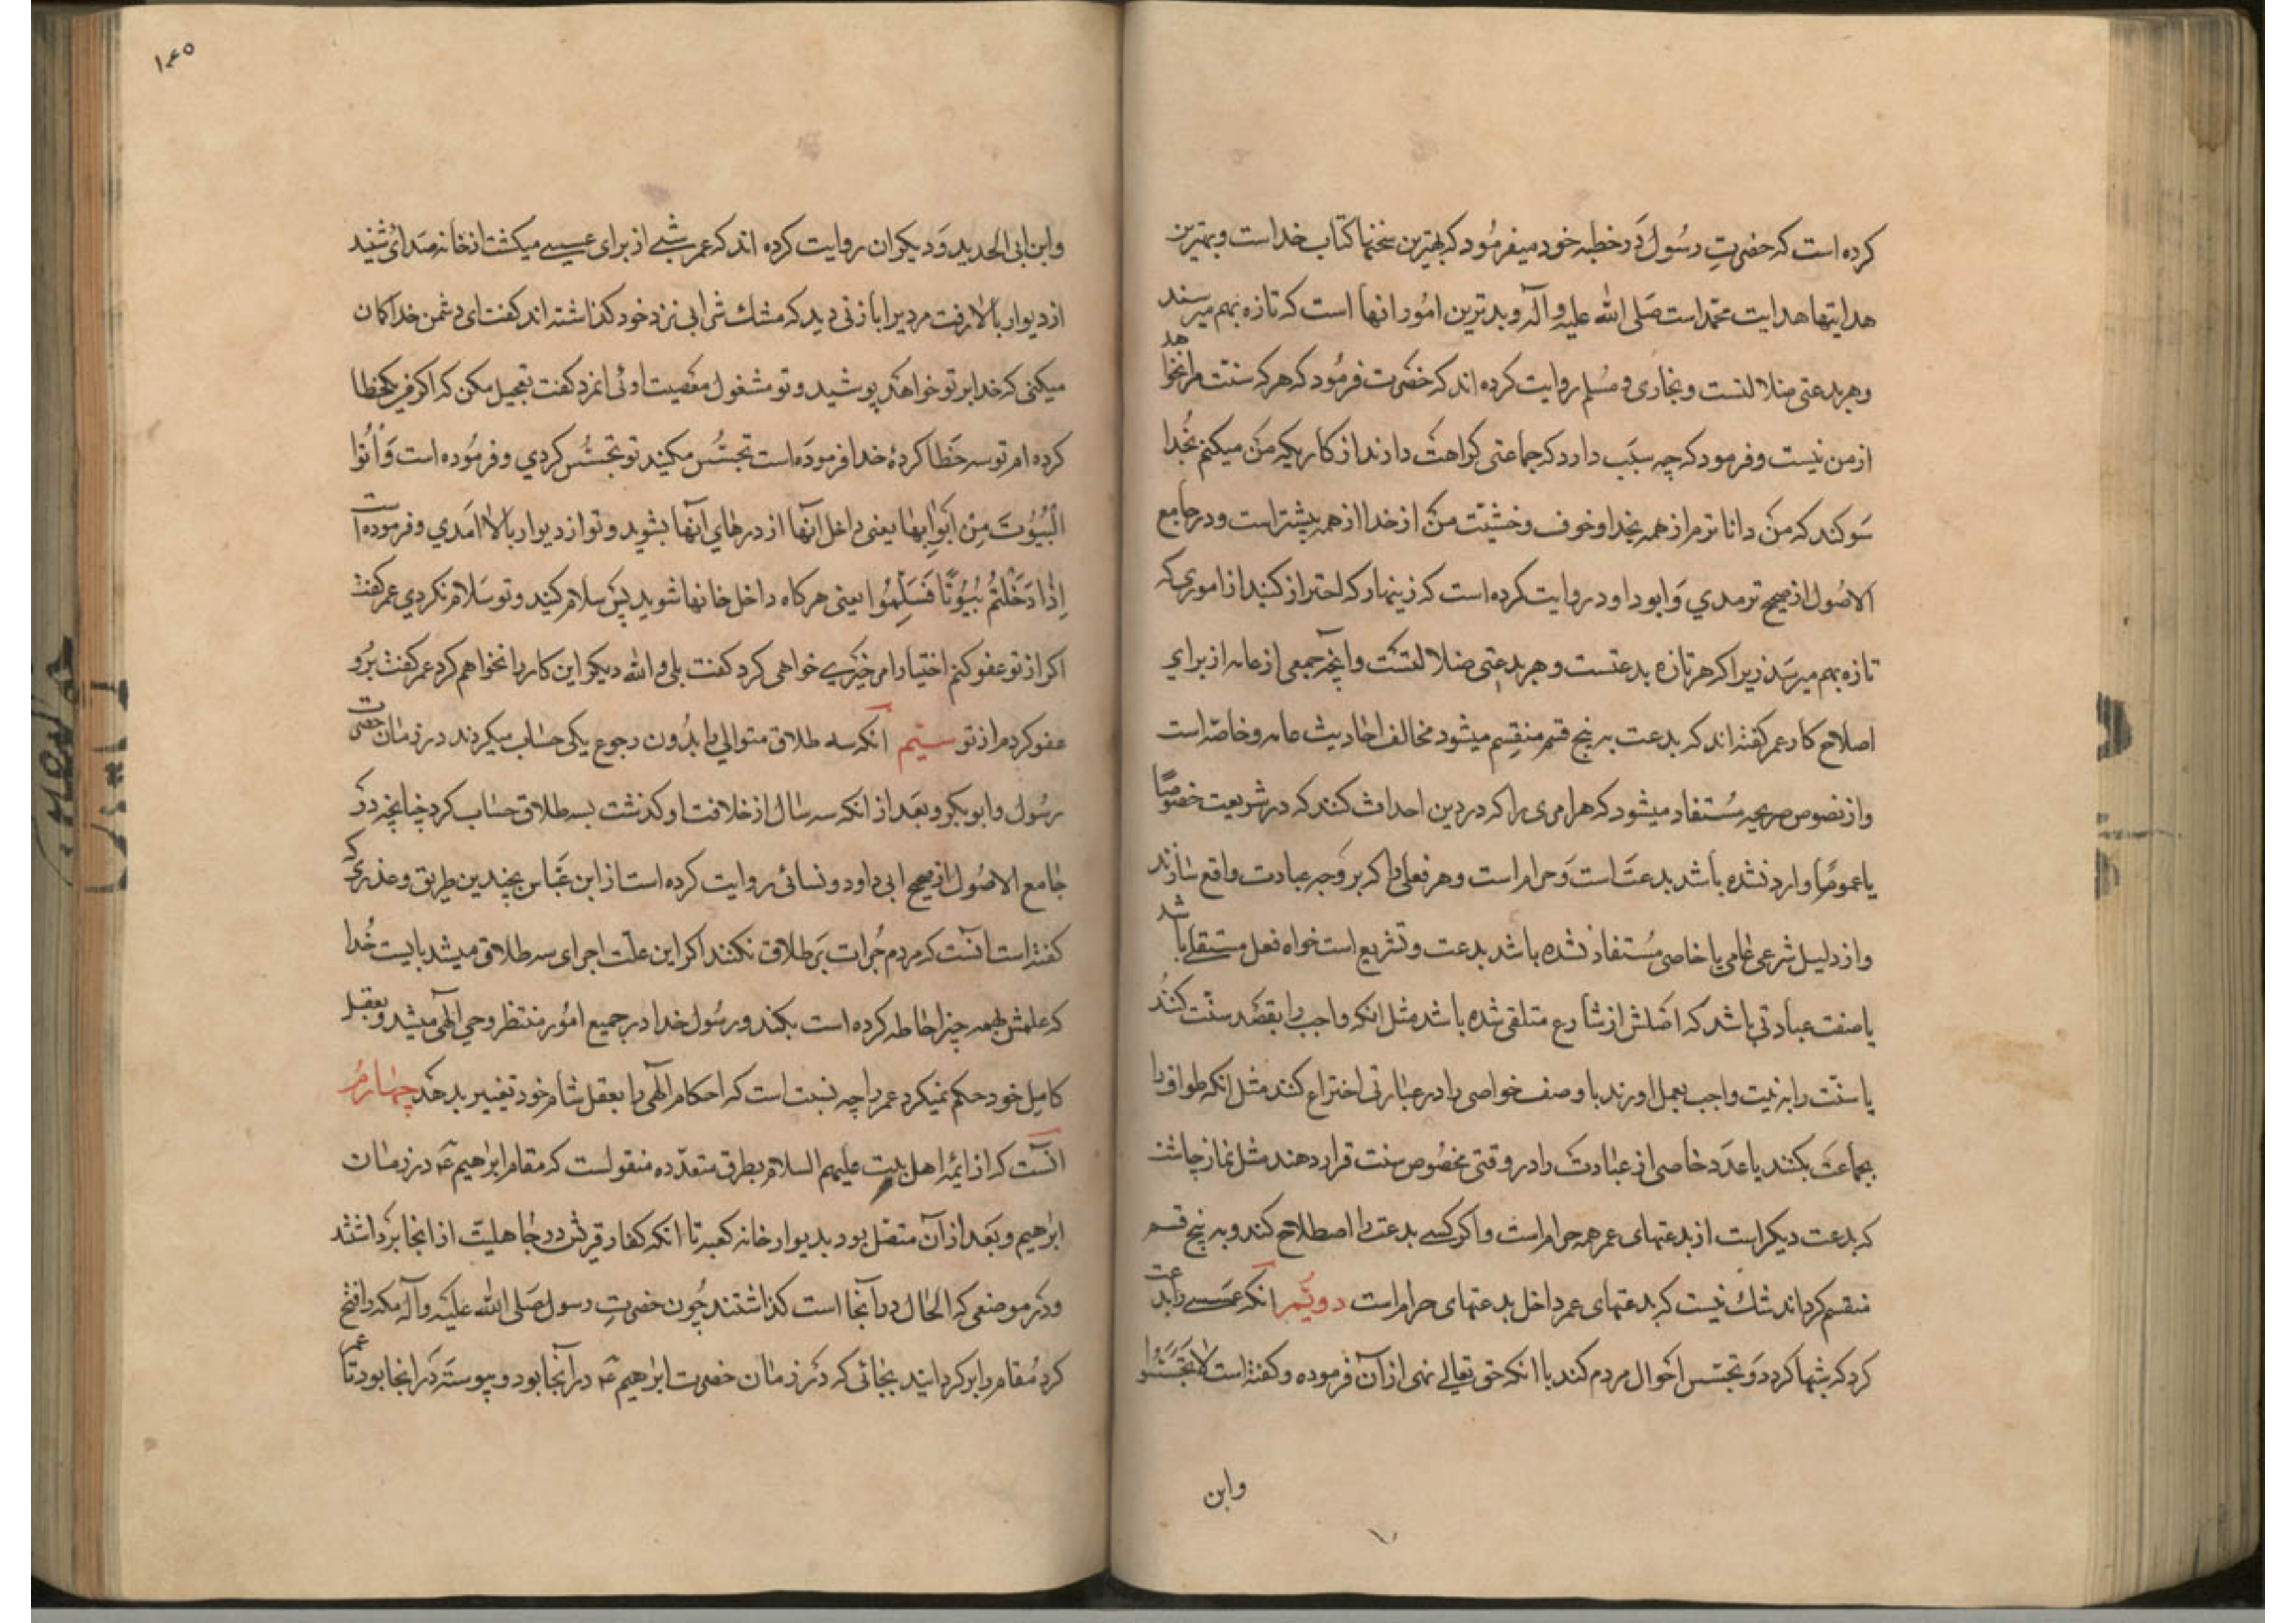 کرده است که حضرتِ رسُول دَر خطبه خود میفرمُود که بهترین سخنها کتاب خداست و بهترین
هدایتها هدایت محمّداست صَلی الله علیه و آله و بدترین امُور انها است که تازه بهم میرسند
و هر بدعتی ضلالتست و بخاری و مُسلم روایت کرده اند که حضرت فرمُود که هرکه سنّت مرا نخواهد
از من نیست و فرمود که چه سبَب دارد که جماعتی کراهت دارند از کاریکه من میکنم بخُدا
سَوکند که من دانا ترم از همه بخدا و خوف و خشیّت من از خدا از همه بیشتر است و در جامع
الاصُول از صحیح ترمدي وَ ابو داود روایت کرده است که زینهار که احتراز کنید از اموریکه
تازه بهم میرسَد زیرا که هر تازه بدعتست و هر بدعتی ضلالتست و آنچه جمعی از عامه از برای
اصلاح کار عمر کفته اند که بدعت به پنج قسم منقسِم میشود مخالف احادیث عامه و خاصّه است
و از نصوص صریحه مُستفاد میشود که هر امری را که در دین احداث کنند که در شریعت خصُوصًا
یا عمومًا وارد نشده باشد بدعتَ است وَ حرام است و هر فعلی را که بر وَجه عبادت واقع سازند
و از دلیل شرعی عامی یا خاصی مُستفاد نشده باشد بدعت و تشریع است خواه فعل مستقلی باشد
یا صفت عبادتی باشد که اصَلش از شارع متلقی شده باشد مثل انکه واجب را بقصَد سنّت کنُند
یا سنّت را به نیت واجب بعمل اورند یا وصف خواصی را در عبارتی اختراع کنند مثل انکه طواف را
بجماعَت بکنند یا عدَد خاصی از عبادت را در وقتی مخصُوص سنت قرار دهند مثل نماز چاشت
که بدعت دیکر است از بدعتهای عمر همه حرام است و اکر کسے بدعت را اصطلاح کند و به پنج قسم
منقسم کرداند شك نیست که بدعتهای عمر داخل بدعتهای حرام است دویّم انکه عسسے را بدعت
کرد که شبها کردد وَ تجسّس احَوال مردم کند با انکه حق تعالے نهی از آن فرموده و کفته است لا تَجَسَّسُوا
وابن
۱۴۵
و ابن ابی الحدید وَ دیکران روایت کرده اند که عمر شبے از برای عسسے میکشت از خانه صَدائی شنید
از دیوار بالا رفت مردیرا با زنی دید که مشك شرابی نزد خود کذاشته اند کفت ای دشمن خدا کان
میکنی که خدا بر تو خواهد پوشید و تو مشغول معَصیت اوئی انمرد کفت تعجیل مکن که اکر من یکخطا
کرده ام تو سه خَطا کردهٔ خدا فرموده است تجسُّس مکیند تو تجسُّس کردي و فرمُوده است وَأْتُوا
الْبُیُوتَ مِنْ أَبْوَابِهَا یعنی داخل آنها از درهاي آنها بشوید و تو از دیوار بالا امَدي و فرموده است
اِذَا دَخَلْتُم بُیُوتًا فَسَلِّمُوا یعنی هرکاه داخل خانها شوید پَس سلام کنید و تو سَلام نکردي عمر کفت
اکر از تو عفو کنم اختیار امر خیَرے خواهی کرد کفت بلی و الله دیکر این کار را نخواهم کرد عمر کفت برُو
عفو کردم از تو سیّم آنکه سه طلاق متوالي را بدُون رجوع یکی حسَاب میکردند در زمان حضرت
رسُول و ابو بکر و بعَد از انکه سه سال از خلافت او کذشت بسه طلاق حسَاب کرد چنانچه دَر
جامع الاصُول از صحیح ابی داود و نسائی روایت کرده است از ابن عبَّاس بچندین طریق و عذریکه
کفته است انست که مردم جُرات بَر طلاق نکنند اکر این علّت اجرای سه طلاق میشد بایست خُدا
که علمش بهمه چیز احاطه کرده است بکند و رسُول خدا در جمیع امُور منتظر وحي الٓهی میشد و بعقل
کامِل خود حکم نمیکرد عمر را چه نسبت است که احکام الٓهی را بعقل شام خود تغییر بدهَد چهارمُ
آنست که از ایمّه اهل بیت علیهم السلام بطرق متعدّده منقولست که مقام ابراهیم ع در زمان
ابراهیم و بعَد از آن متصّل بود بدیوار خانه کعبه تا انکه کفار قریش در جاهلیّت از انجا برَداشتند
و دَر موضعی که الحال در آنجا است کذاشتند چُون حضرتِ رسول صَلی الله علیَه و آله مکه را فتح
کرد مُقام را بر کردانید بجائی که دَر زمان حضرت ابراهیم ع در آنجا بود و پیوستَه دَر انجا بود تا عمر